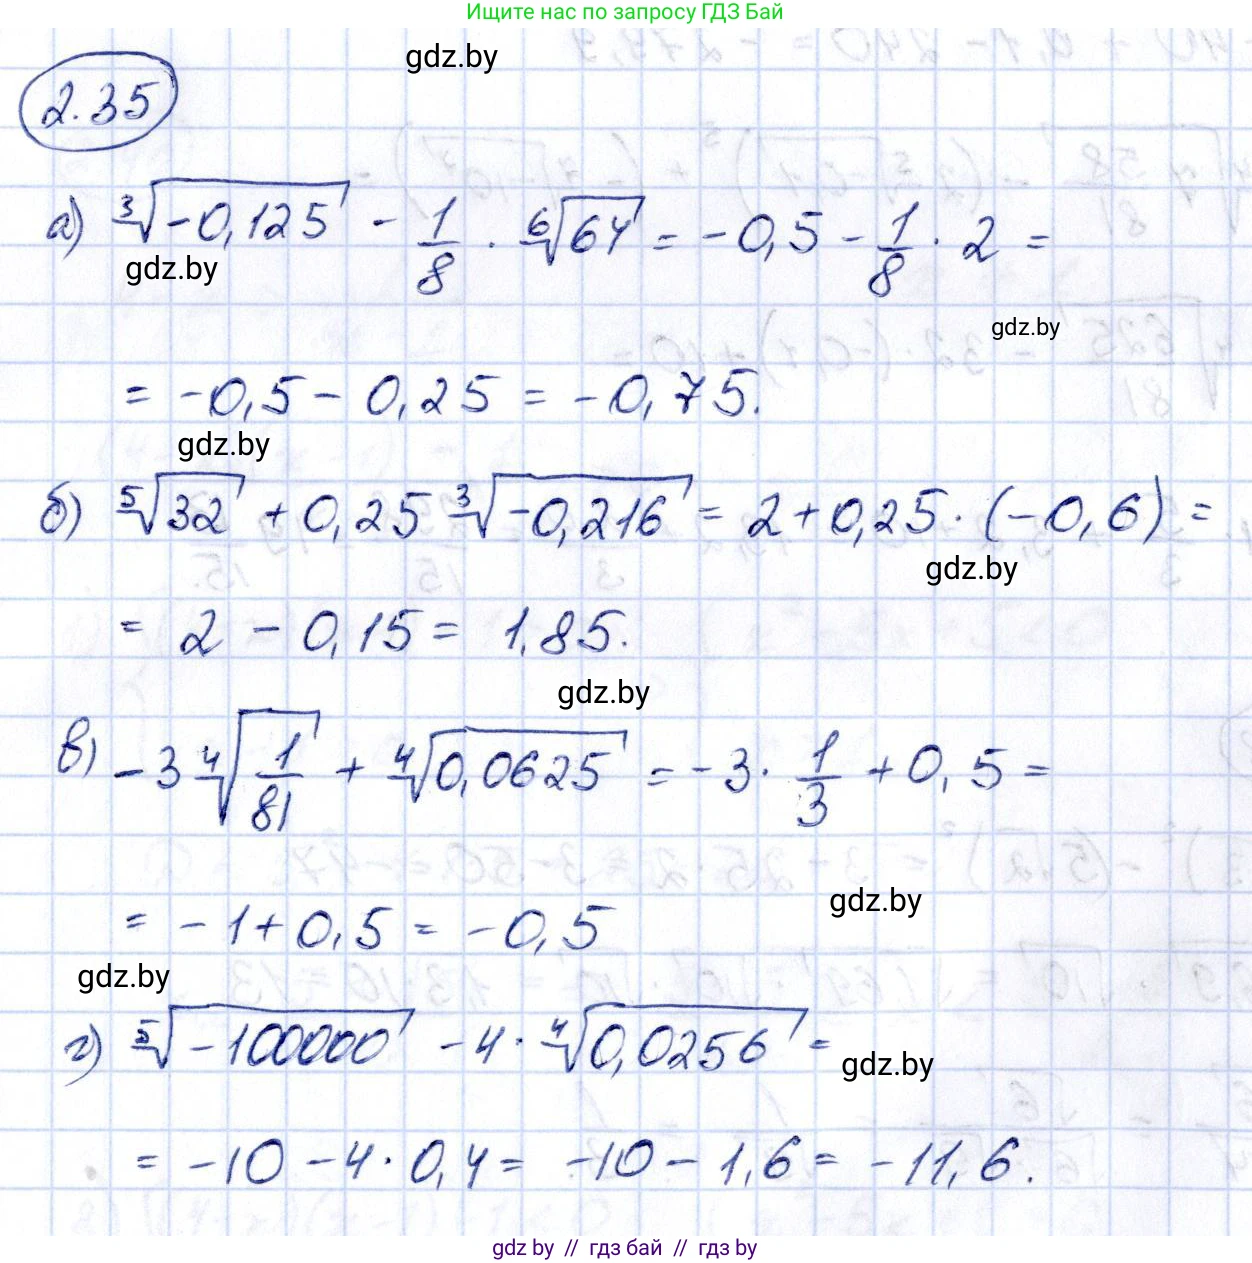 Ищите нас по запросу ГДЗ Бай
gdz.by
2.35
а) ∛(-0,125) - 1/8 · ⁶√64 = -0,5 - 1/8 · 2 =
gdz.by
gdz.by
= -0,5 - 0,25 = -0,75.
gdz.by
б) ⁵√32 + 0,25 ∛(-0,216) = 2 + 0,25 · (-0,6) =
gdz.by
= 2 - 0,15 = 1,85.
gdz.by
в) -3 ⁴√(1/81) + ⁴√0,0625 = -3 · 1/3 + 0,5 =
gdz.by
= -1 + 0,5 = -0,5
gdz.by
г) ⁵√(-100000) - 4 · ⁴√0,0256 =
gdz.by
= -10 - 4 · 0,4 = -10 - 1,6 = -11,6.
gdz by // гдз бай // гдз by